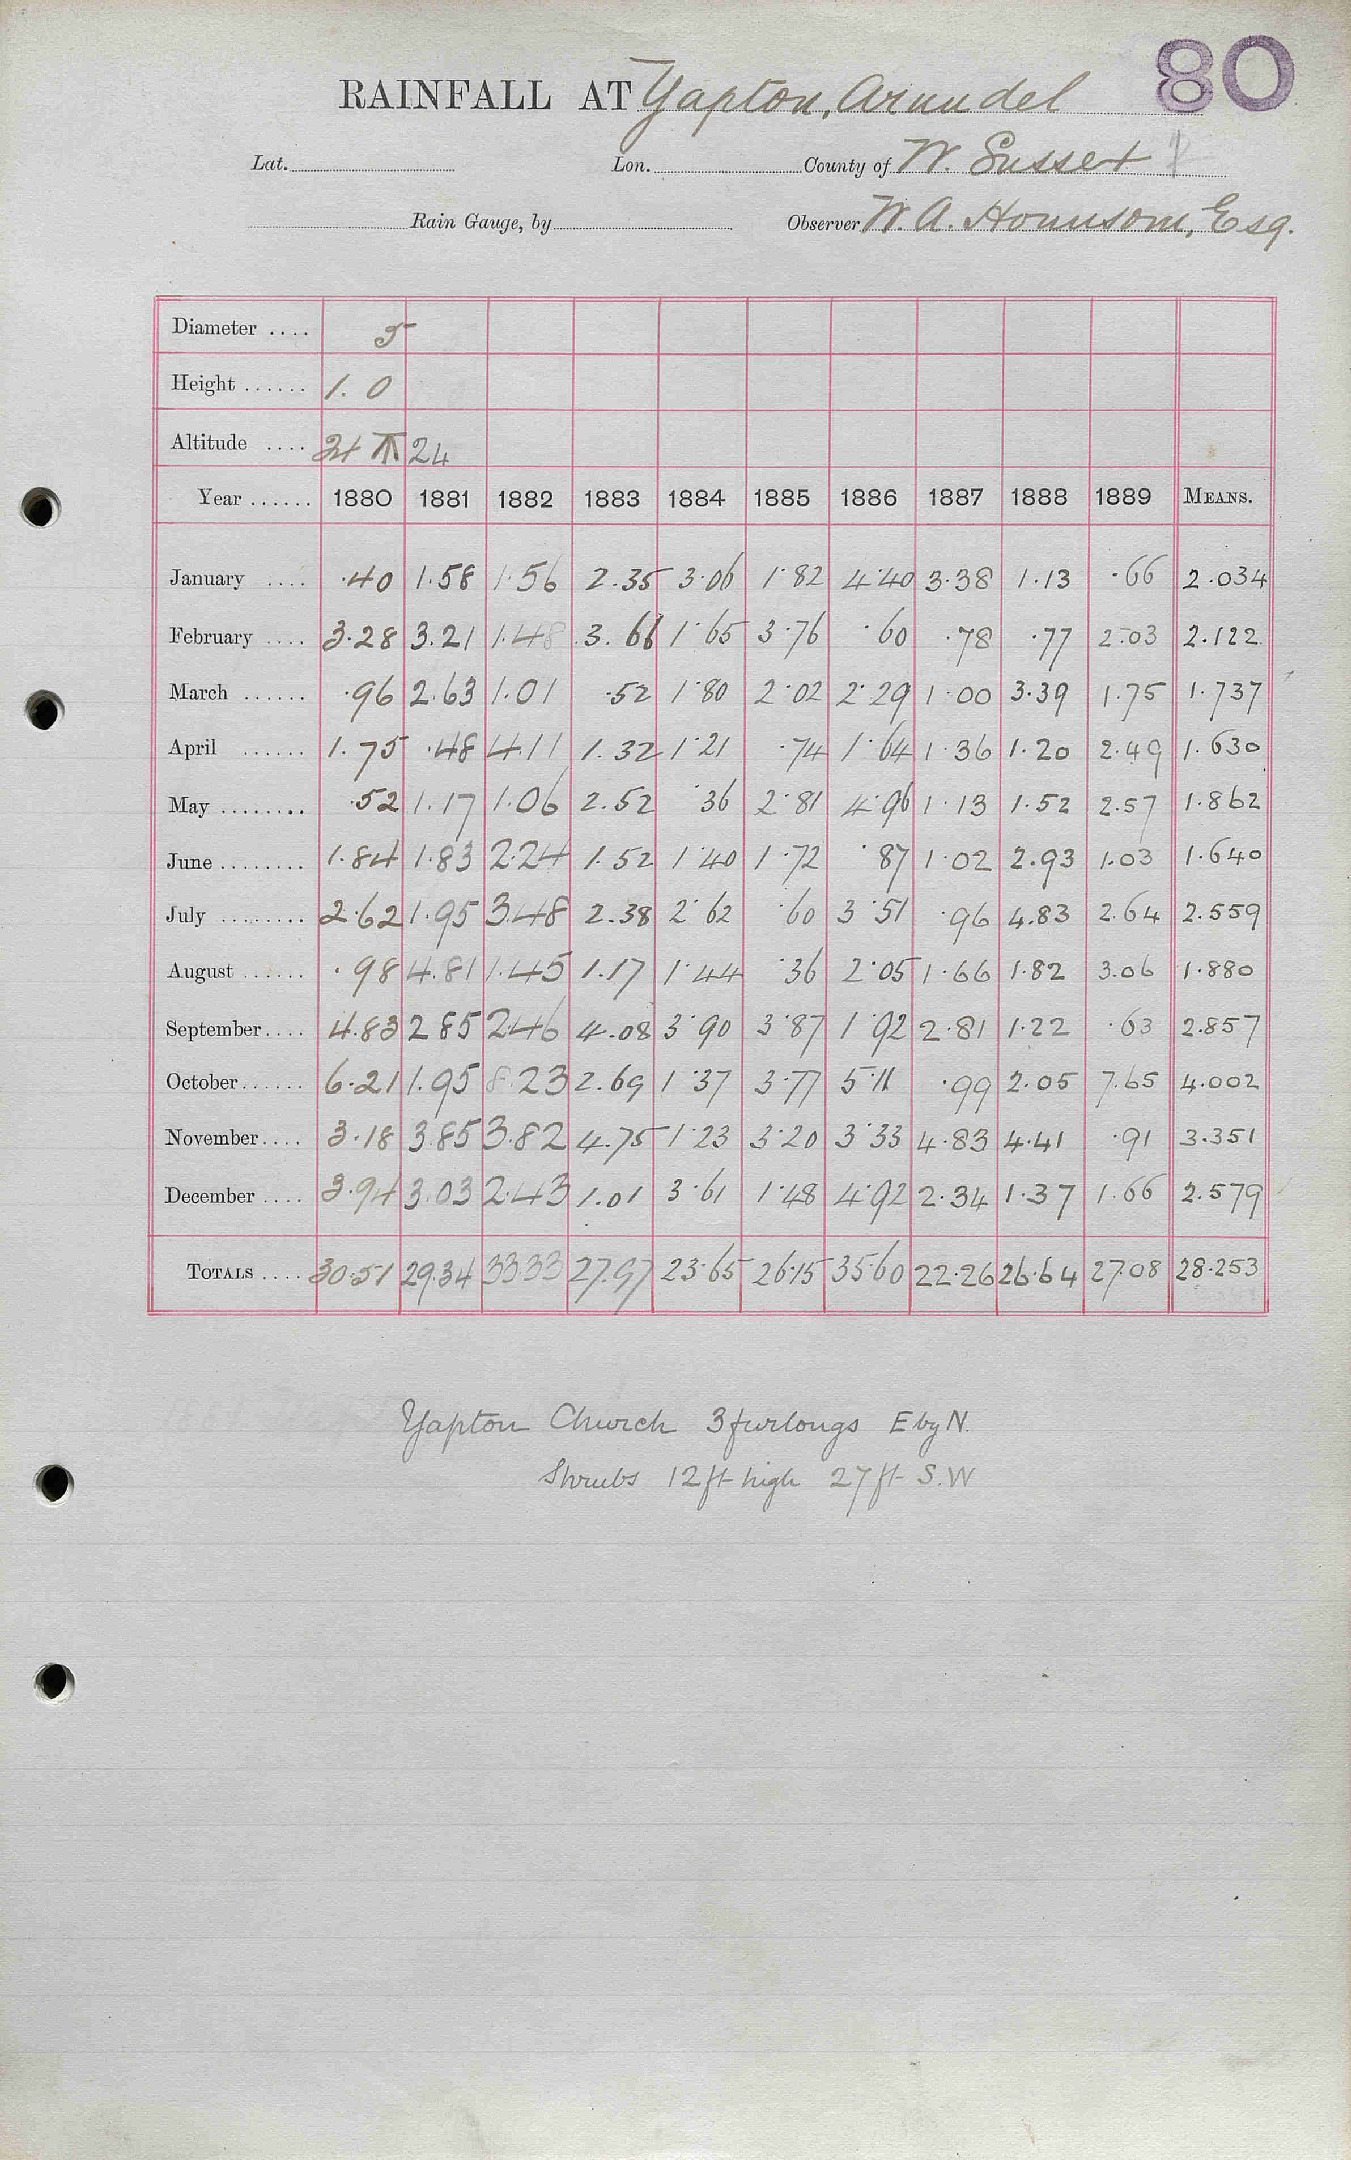 80
RAINFALL AT Yapton, Arundel
Lat. Lon. County of W. Sussex
Rain Gauge, by Observer W. A. Hounsom, Esq.
Diameter .... 5
Height ...... 1. 0
Altitude .... 24
Year ...... 1880 1881 1882 1883 1884 1885 1886 1887 1888 1889 MEANS.
January .... .40 1.58 1.56 2.35 3.06 1.82 4.40 3.38 1.13 .66 2.034
February .... 3.28 3.21 1.48 3.66 1.65 3.76 .60 .78 .77 2.03 2.122
March ...... .96 2.63 1.01 .52 1.80 2.02 2.29 1.00 3.39 1.75 1.737
April ...... 1.75 .48 4.11 1.32 1.21 .74 1.64 1.36 1.20 2.49 1.630
May ........ .52 1.17 1.06 2.52 .36 2.81 4.96 1.13 1.52 2.57 1.862
June ........ 1.84 1.83 2.24 1.52 1.40 1.72 .87 1.02 2.93 1.03 1.640
July ........ 2.62 1.95 3.48 2.38 2.62 .60 3.51 .96 4.83 2.64 2.559
August ...... .98 4.81 1.45 1.17 1.44 .36 2.05 1.66 1.82 3.06 1.880
September.... 4.83 2.85 2.46 4.08 3.90 3.87 1.92 2.81 1.22 .63 2.857
October...... 6.21 1.95 8.23 2.69 1.37 3.77 5.11 .99 2.05 7.65 4.002
November.... 3.18 3.85 3.82 4.75 1.23 3.20 3.33 4.83 4.41 .91 3.351
December .... 3.94 3.03 2.43 1.01 3.61 1.48 4.92 2.34 1.37 1.66 2.579
TOTALS .... 30.51 29.34 33.33 27.97 23.65 26.15 35.60 22.26 26.64 27.08 28.253
Yapton Church 3 furlongs E by N.
Shrubs 12 ft high 27 ft S.W